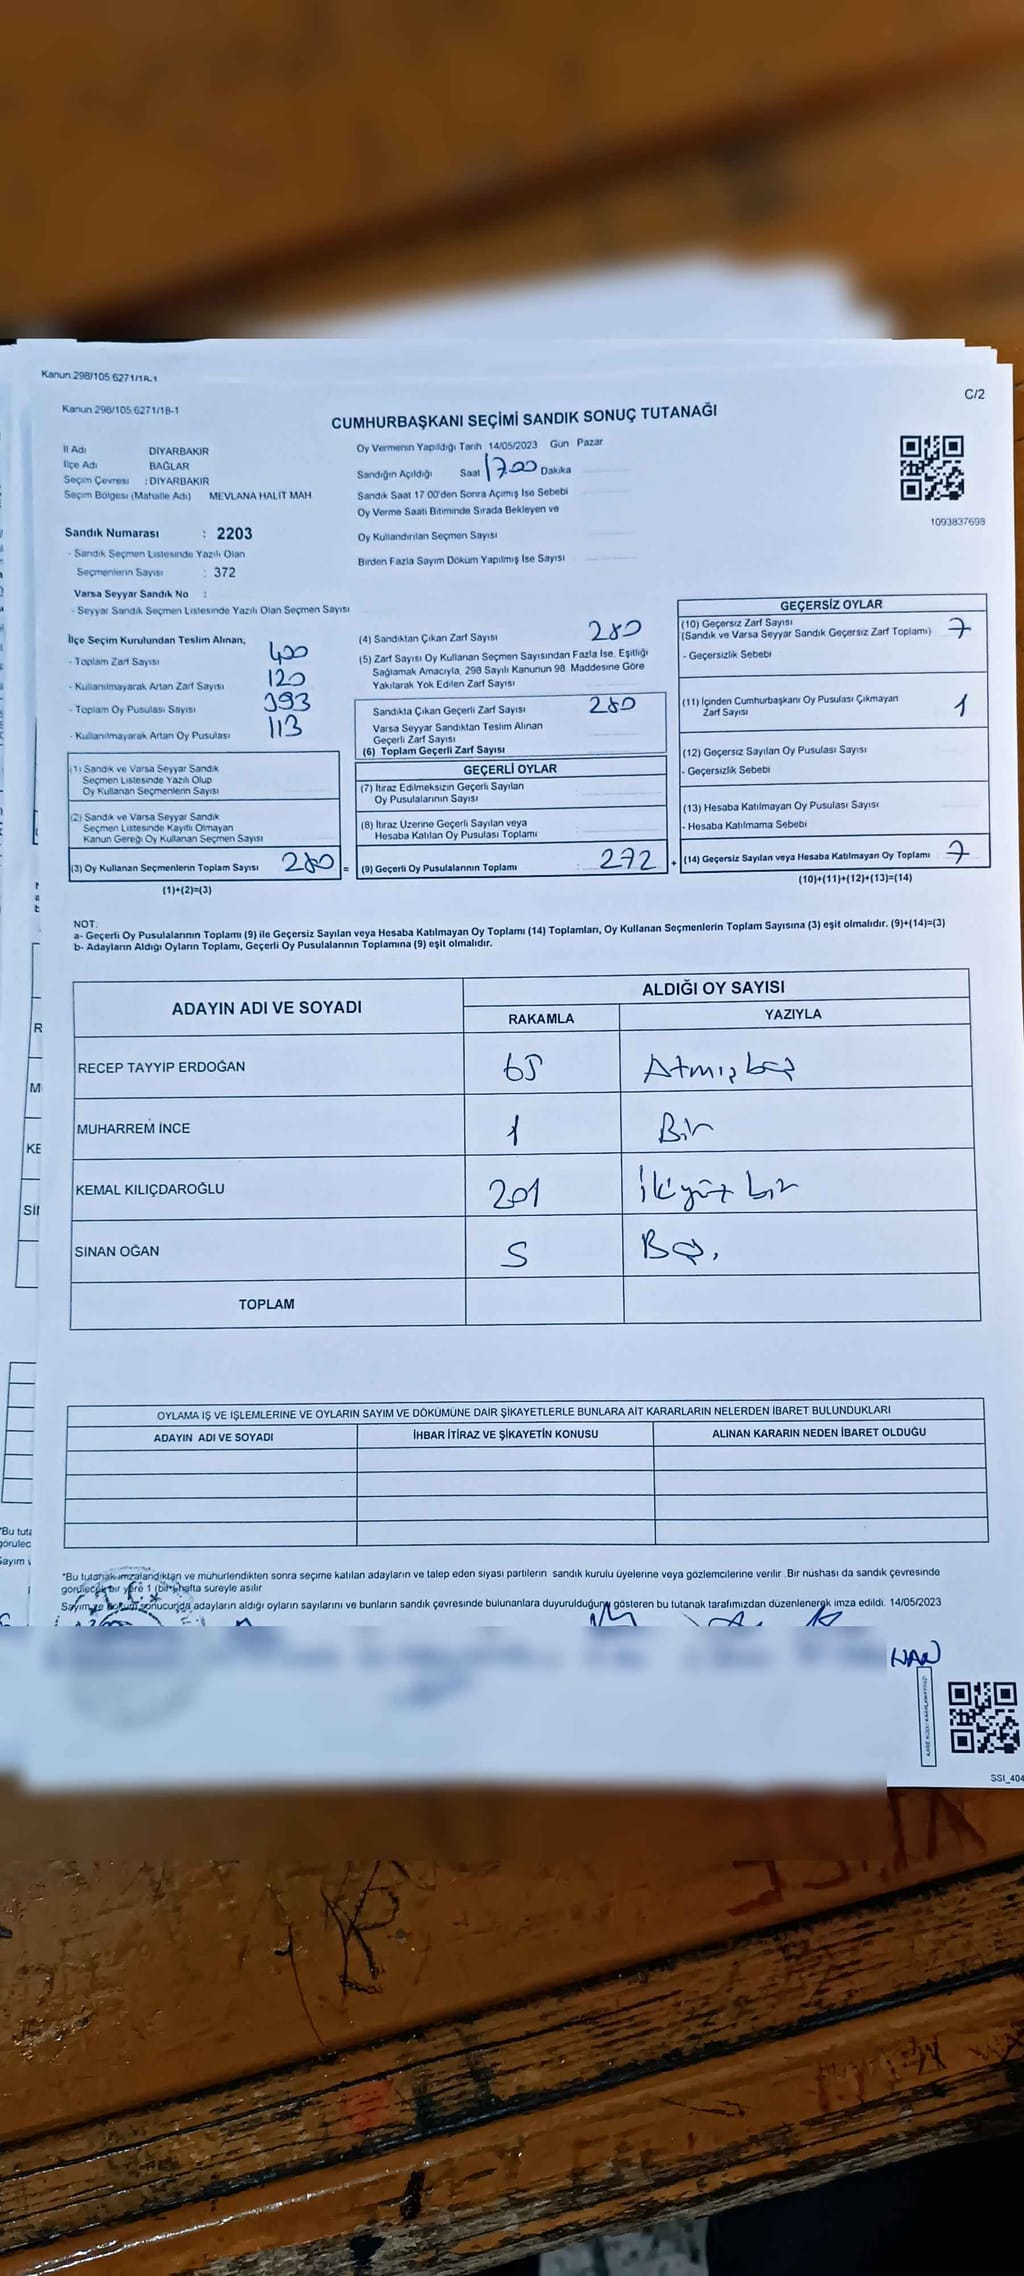 Kanun.298/105.6271/1B-1
Kanun.298/105.6271/1B-1
C/2
CUMHURBAŞKANI SEÇİMİ SANDIK SONUÇ TUTANAĞI
İl Adı DİYARBAKIR
İlçe Adı BAĞLAR
Seçim Çevresi : DİYARBAKIR
Seçim Bölgesi (Mahalle Adı) MEVLANA HALİT MAH
Oy Vermenin Yapıldığı Tarih 14/05/2023 Gün Pazar
Sandığın Açıldığı Saat 17.00 Dakika
Sandık Saat 17 00'den Sonra Açımış İse Sebebi
Oy Verme Saati Bitiminde Sırada Bekleyen ve
Oy Kullandırılan Seçmen Sayısı
Birden Fazla Sayım Döküm Yapılmış İse Sayısı
1093837698
Sandık Numarası : 2203
- Sandık Seçmen Listesinde Yazılı Olan
Seçmenlerin Sayısı : 372
Varsa Seyyar Sandık No :
- Seyyar Sandık Seçmen Listesinde Yazılı Olan Seçmen Sayısı
İlçe Seçim Kurulundan Teslim Alınan,
- Toplam Zarf Sayısı 400
- Kullanılmayarak Artan Zarf Sayısı 120
- Toplam Oy Pusulası Sayısı 393
- Kullanılmayarak Artan Oy Pusulası 113
(1) Sandık ve Varsa Seyyar Sandık
Seçmen Listesinde Yazılı Olup
Oy Kullanan Seçmenlerin Sayısı
(2) Sandık ve Varsa Seyyar Sandık
Seçmen Listesinde Kayıtlı Olmayan
Kanun Gereği Oy Kullanan Seçmen Sayısı
(3) Oy Kullanan Seçmenlerin Toplam Sayısı 280 =
(1)+(2)=(3)
(4) Sandıktan Çıkan Zarf Sayısı 280
(5) Zarf Sayısı Oy Kullanan Seçmen Sayısından Fazla İse, Eşitliği
Sağlamak Amacıyla, 298 Sayılı Kanunun 98. Maddesine Göre
Yakılarak Yok Edilen Zarf Sayısı
Sandıkta Çıkan Geçerli Zarf Sayısı 280
Varsa Seyyar Sandıktan Teslim Alınan
Geçerli Zarf Sayısı
(6) Toplam Geçerli Zarf Sayısı
GEÇERLİ OYLAR
(7) İtiraz Edilmeksizin Geçerli Sayılan
Oy Pusulalarının Sayısı
(8) İtiraz Üzerine Geçerli Sayılan veya
Hesaba Katılan Oy Pusulası Toplamı
(9) Geçerli Oy Pusulalarının Toplamı : 272 +
GEÇERSİZ OYLAR
(10) Geçersiz Zarf Sayısı 7
(Sandık ve Varsa Seyyar Sandık Geçersiz Zarf Toplamı)
- Geçersizlik Sebebi
(11) İçinden Cumhurbaşkanı Oy Pusulası Çıkmayan
Zarf Sayısı 1
(12) Geçersiz Sayılan Oy Pusulası Sayısı
- Geçersizlik Sebebi
(13) Hesaba Katılmayan Oy Pusulası Sayısı
- Hesaba Katılmama Sebebi
(14) Geçersiz Sayılan veya Hesaba Katılmayan Oy Toplamı 7
(10)+(11)+(12)+(13)=(14)
NOT:
a- Geçerli Oy Pusulalarının Toplamı (9) ile Geçersiz Sayılan veya Hesaba Katılmayan Oy Toplamı (14) Toplamları, Oy Kullanan Seçmenlerin Toplam Sayısına (3) eşit olmalıdır. (9)+(14)=(3)
b- Adayların Aldığı Oyların Toplamı, Geçerli Oy Pusulalarının Toplamına (9) eşit olmalıdır.
ADAYIN ADI VE SOYADI
ALDIĞI OY SAYISI
RAKAMLA YAZIYLA
RECEP TAYYİP ERDOĞAN 65 Atmışbeş
MUHARREM İNCE 1 Bir
KEMAL KILIÇDAROĞLU 201 İkiyüz bir
SİNAN OĞAN 5 Beş.
TOPLAM
OYLAMA İŞ VE İŞLEMLERİNE VE OYLARIN SAYIM VE DÖKÜMÜNE DAİR ŞİKAYETLERLE BUNLARA AİT KARARLARIN NELERDEN İBARET BULUNDUKLARI
ADAYIN ADI VE SOYADI İHBAR İTİRAZ VE ŞİKAYETİN KONUSU ALINAN KARARIN NEDEN İBARET OLDUĞU
*Bu tutanak imzalandıktan ve mühürlendikten sonra seçime katılan adayların ve talep eden siyasi partilerin sandık kurulu üyelerine veya gözlemcilerine verilir. Bir nüshası da sandık çevresinde
görülecek bir yere 1 (bir) hafta süreyle asılır
Sayım ve döküm sonucunda adayların aldığı oyların sayılarını ve bunların sandık çevresinde bulunanlara duyurulduğunu gösteren bu tutanak tarafımızdan düzenlenerek imza edildi. 14/05/2023
SSI_404